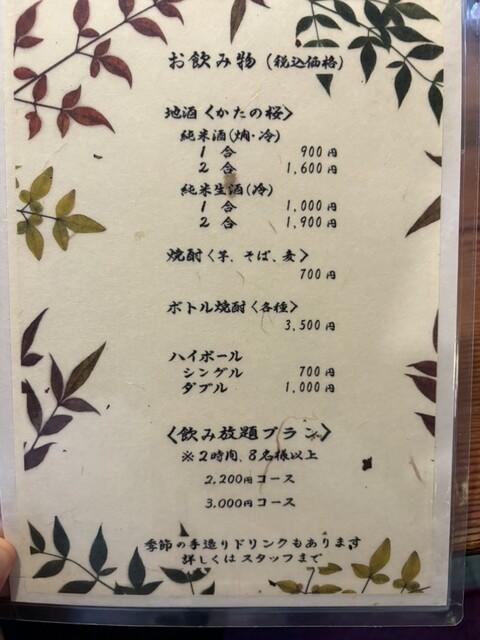 お飲み物(税込価格)
地酒〈かたの桜〉
純米酒(燗・冷)
1合 900円
2合 1,600円
純米生酒(冷)
1合 1,000円
2合 1,900円
焼酎〈芋、そば、麦〉
700円
ボトル焼酎〈各種〉
3,500円
ハイボール
シングル 700円
ダブル 1,000円
〈飲み放題プラン〉
※2時間、8名様以上
2,200円コース
3,000円コース
季節の手造りドリンクもあります
詳しくはスタッフまで